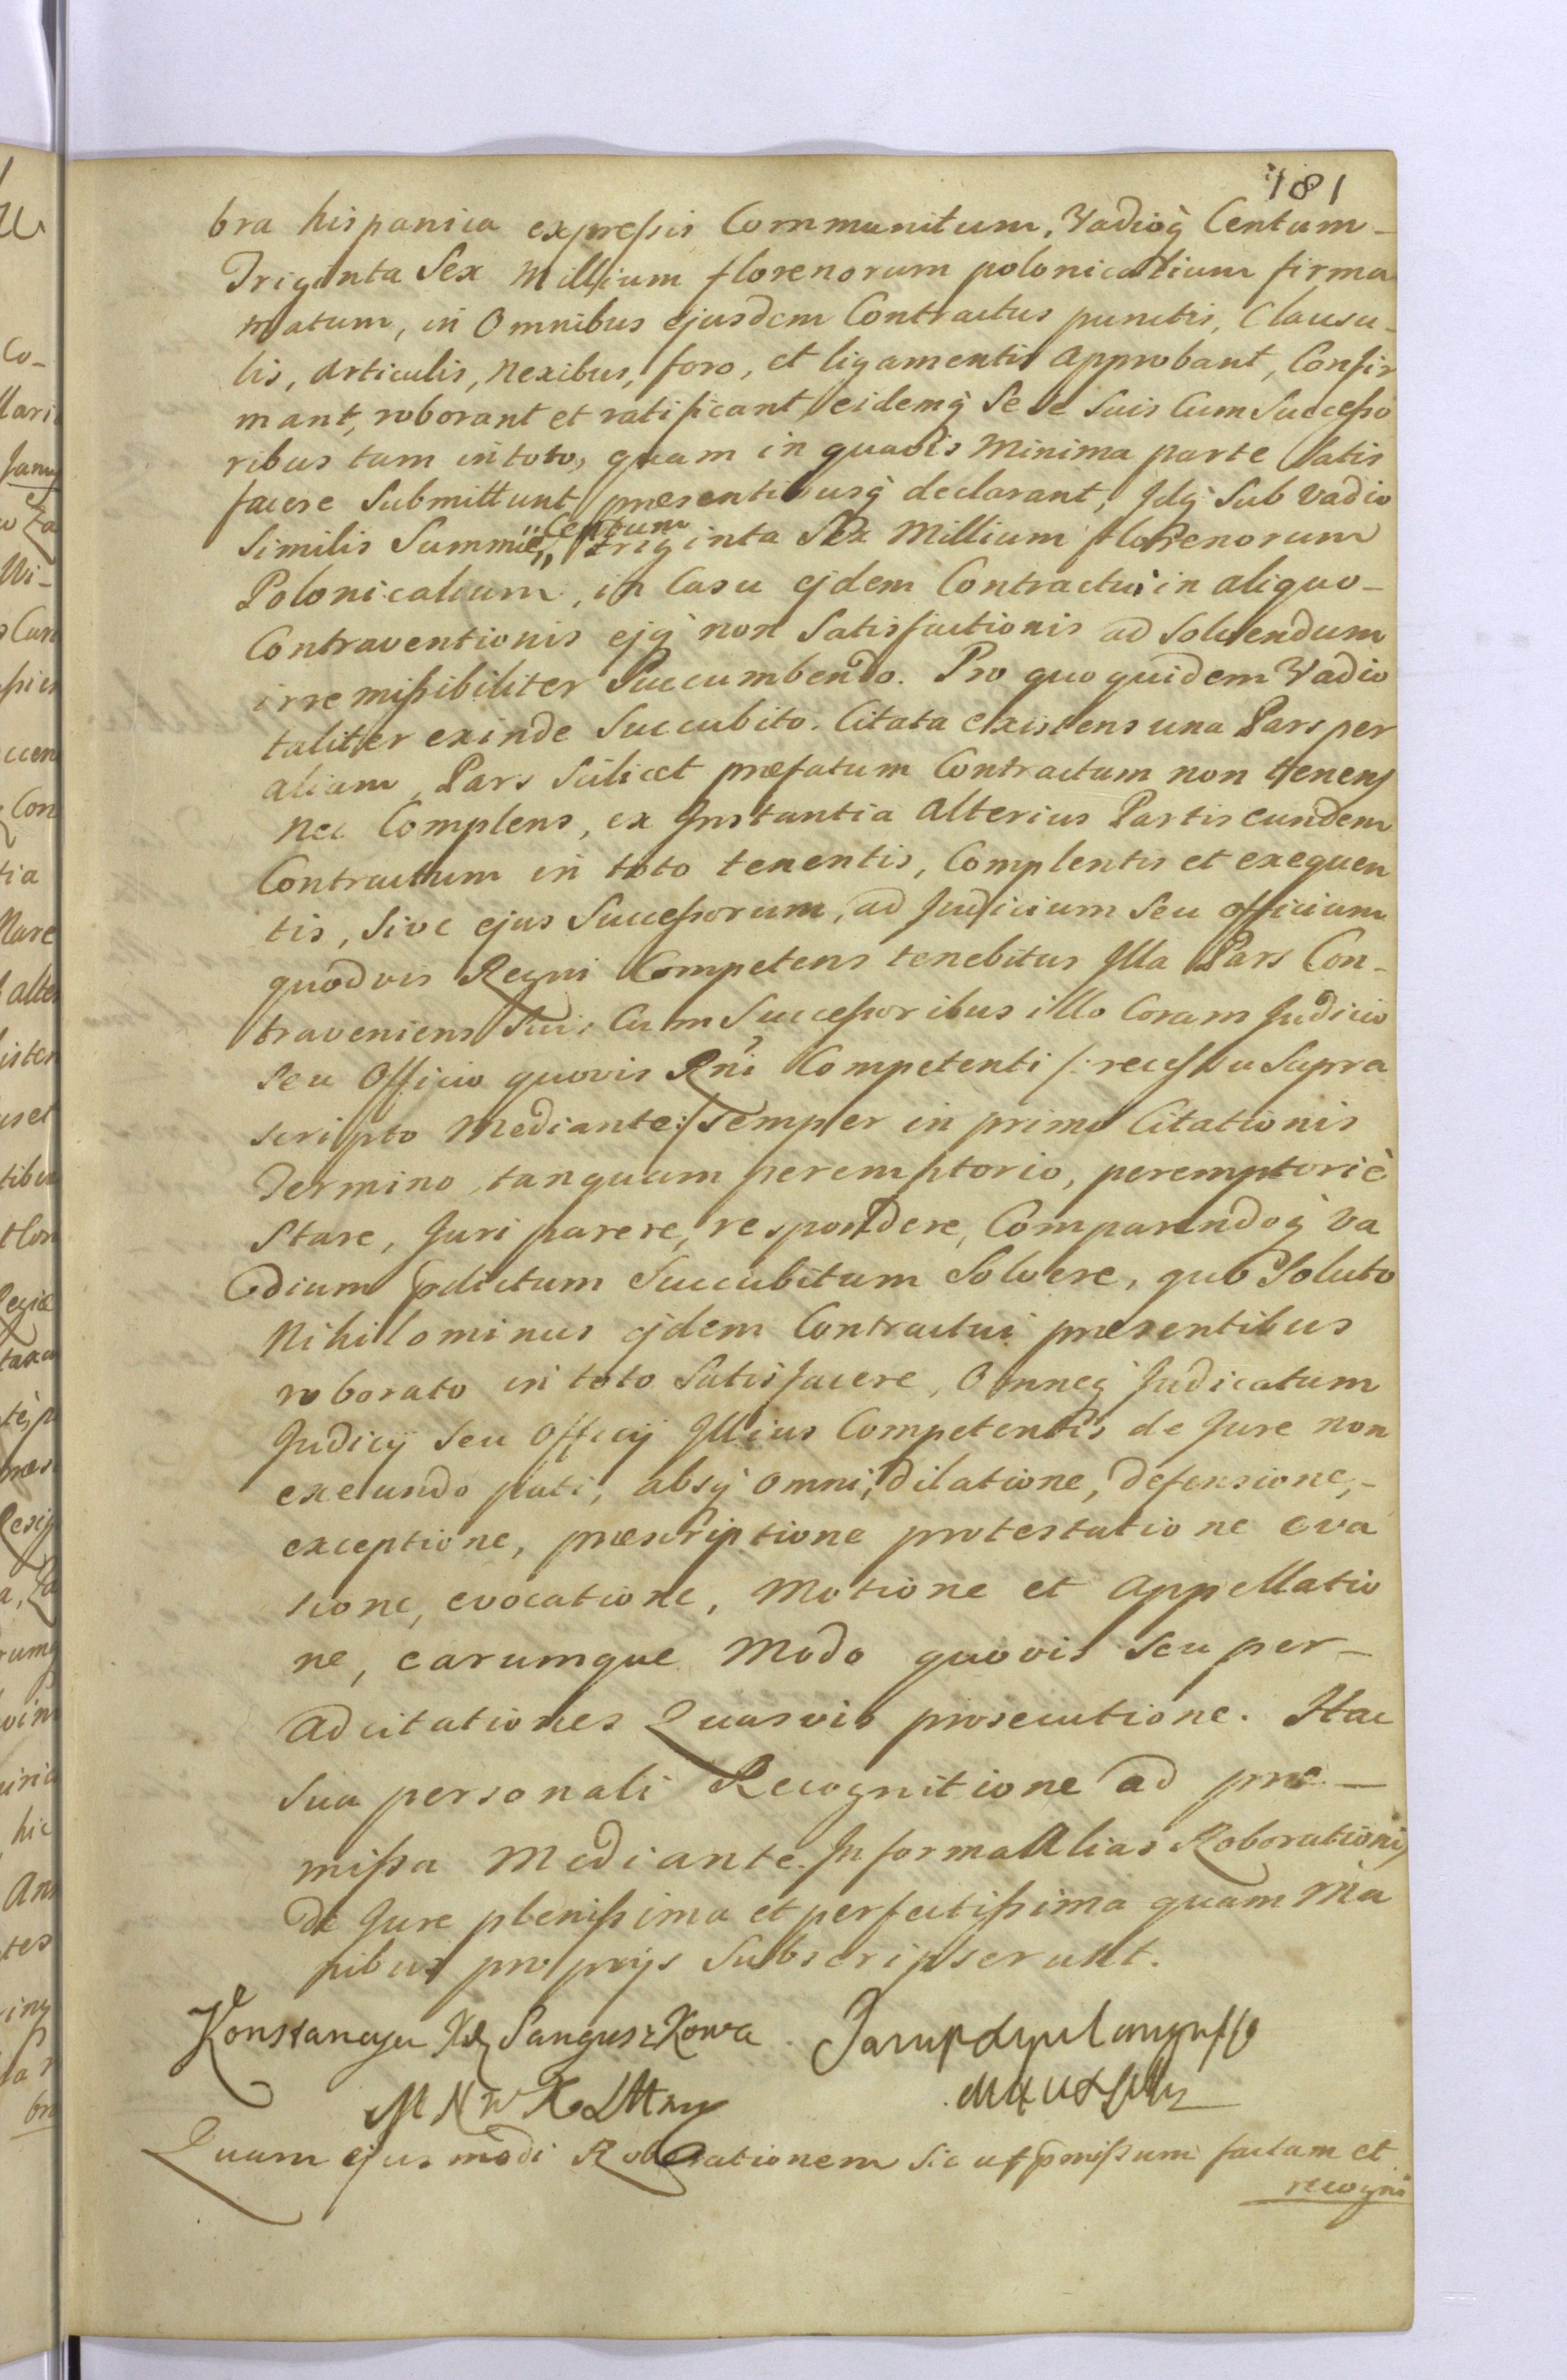 181
bra hispanica expressis Communitum, Vadioq̀ Centum –
Triginta Sex Millium florenorum polonicalium firma
matum, in Omnibus ejusdem Contractus punctis, Clausu–
lis, Articulis, Nexibus, foro, et ligamentis approbant, Confir
mant, roborant et ratificant eidemq̀ Sese Suis Cum Successo
ribus tam in toto, quam in quavis Minima parte Satis
facere Submittunt præsentibusq̀ declarant, Idq̀ Sub Vadio
Similis Summæ, Centum triginta Sex Millium florenorum
Polonicalium, in Casu ejdem Contractui in aliquo –
Contraventionis ejq̀ non Satisfactionis ad Solvendum
irremissibiliter Succumbendo. Pro quo quidem Vadio
taliter exinde Succubito. Citata existens una Pars per
aliam, Pars Scilicet præfatum Contractum non tenens
nec Complens, ex Instantia alterius Partis eundem
Contractum in toto tenentis, Complentis et exequen
tis, Sive ejus Successorum, ad Judicium Seu Officium
quodvis Regni Competens tenebitur Illa Pars Con–
traveniens Suis Cum Successoribus illo Coram Judicio
seu Officio quovis Rni Competenti /: recessu Supra
scripto Mediante :/ semper in primo Citationis
Termino tanquam peremptorio, peremptoriè
Stare, Juri parere, respondere, Comparendoq̀ Va
dium pdictum Succubitum Solvere, quo Soluto
Nihilominus ejdem Contractui præsentibus
roborato in toto Satisfacere, Omneq̀ Judicatum
Judicij Seu Officij Illius Competentis de Jure non
exeundo pati, absq̀ omni, dilatione, defensione, –
exceptione, præscriptione protestatione eva
sione, evocatione, Motione et Appellatio
ne, earumque Modo quovis Seu per –
adcitationes Quasvis prosecutione. Hac
Sua personali Recognitione ad præ –
missa Mediante. In forma Alias Roborationis
de Jure plenissima et perfectissima quam Ma
nibus proprijs Subscripserunt.
Konstancya Xż Sanguszkowa
M N W X L
Quam ejusmodi Roborationem Sic ut pmissum factam et
recogni